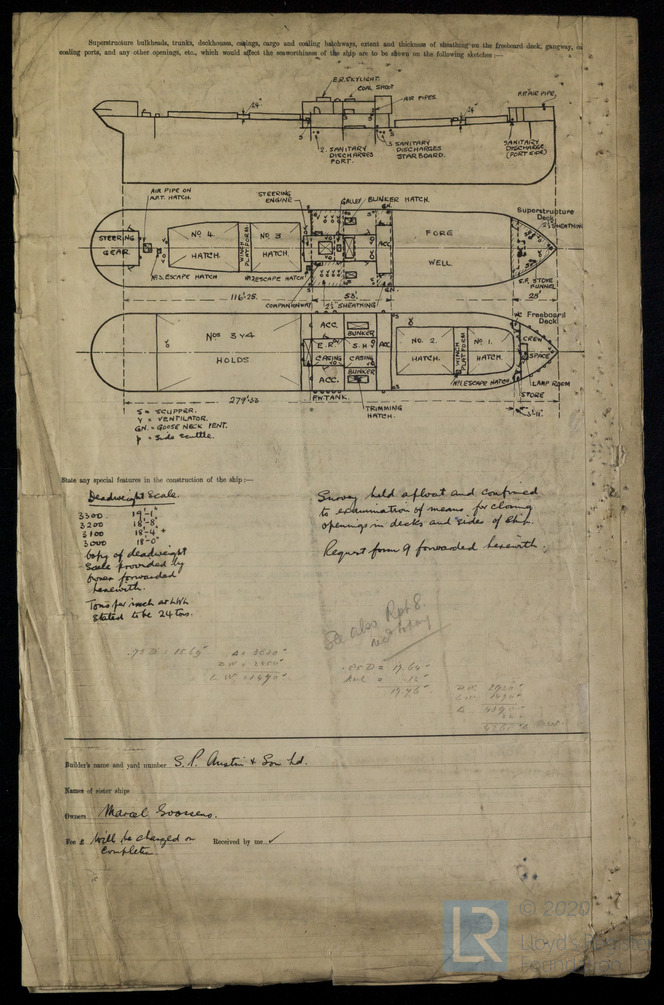 Superstructure bulkheads, trunks, deckhouses, casings, cargo and coaling hatchways, extent and thickness of sheathing on the freeboard deck, gangway,
coaling ports, and any other openings, etc., which would affect the seaworthiness of the ship are to be shown on the following sketches :—
E.R. SKYLIGHT.
COAL SHOOT
AIR PIPES
F.P. AIR PIPE.
24"
24"
2. SANITARY DISCHARGES PORT.
3 SANITARY DISCHARGES STARBOARD.
SANITARY DISCHARGE (PORT SIDE)
AIR PIPE ON A.P.T. HATCH.
STEERING ENGINE
GALLEY
BUNKER HATCH.
GN.
Superstructure Deck
2½" SHEATHING
STEERING GEAR
No 4 HATCH.
WINCH PLATFORM
No 3 HATCH.
ACC
FORE WELL
No3. ESCAPE HATCH
No2 ESCAPE HATCH
S.P. STOVE FUNNEL
116'·25.
COMPANIONWAY
53'
2½" SHEATHING
25'
Freeboard Deck
Nos 3 Y 4 HOLDS
ACC.
BUNKER
E.R. CASING
S.H CASING
ACC.
BUNKER
ACC
No. 2. HATCH.
WINCH PLATFORM
No 1. HATCH.
CREW SPACE
No1 ESCAPE HATCH
LAMP ROOM
STORE
279'·33
F.W. TANK.
TRIMMING HATCH.
S = SCUPPER.
V = VENTILATOR.
GN. = GOOSE NECK VENT.
p = Side Scuttle.
State any special features in the construction of the ship :—
Deadweight Scale.
3300 19'-1"
3200 18'-8"
3100 18'-4"
3000 18'-0"
Copy of deadweight
Scale provided by
Owner forwarded
herewith.
Tons per inch at LWL
stated to be 24 tons.
Survey held afloat and confined
to examination of means for closing
openings in decks and sides of Ship.
Request form 9 forwarded herewith.
See also Rpt 8.
.85 D = 17.64'
Builder's name and yard number S. P. Austin & Son Ld.
Names of sister ships
Owners Marcel Goossens.
Fee £ Will be charged on
completion
Received by me
LR
© 2020
Lloyd's Register
Foundation